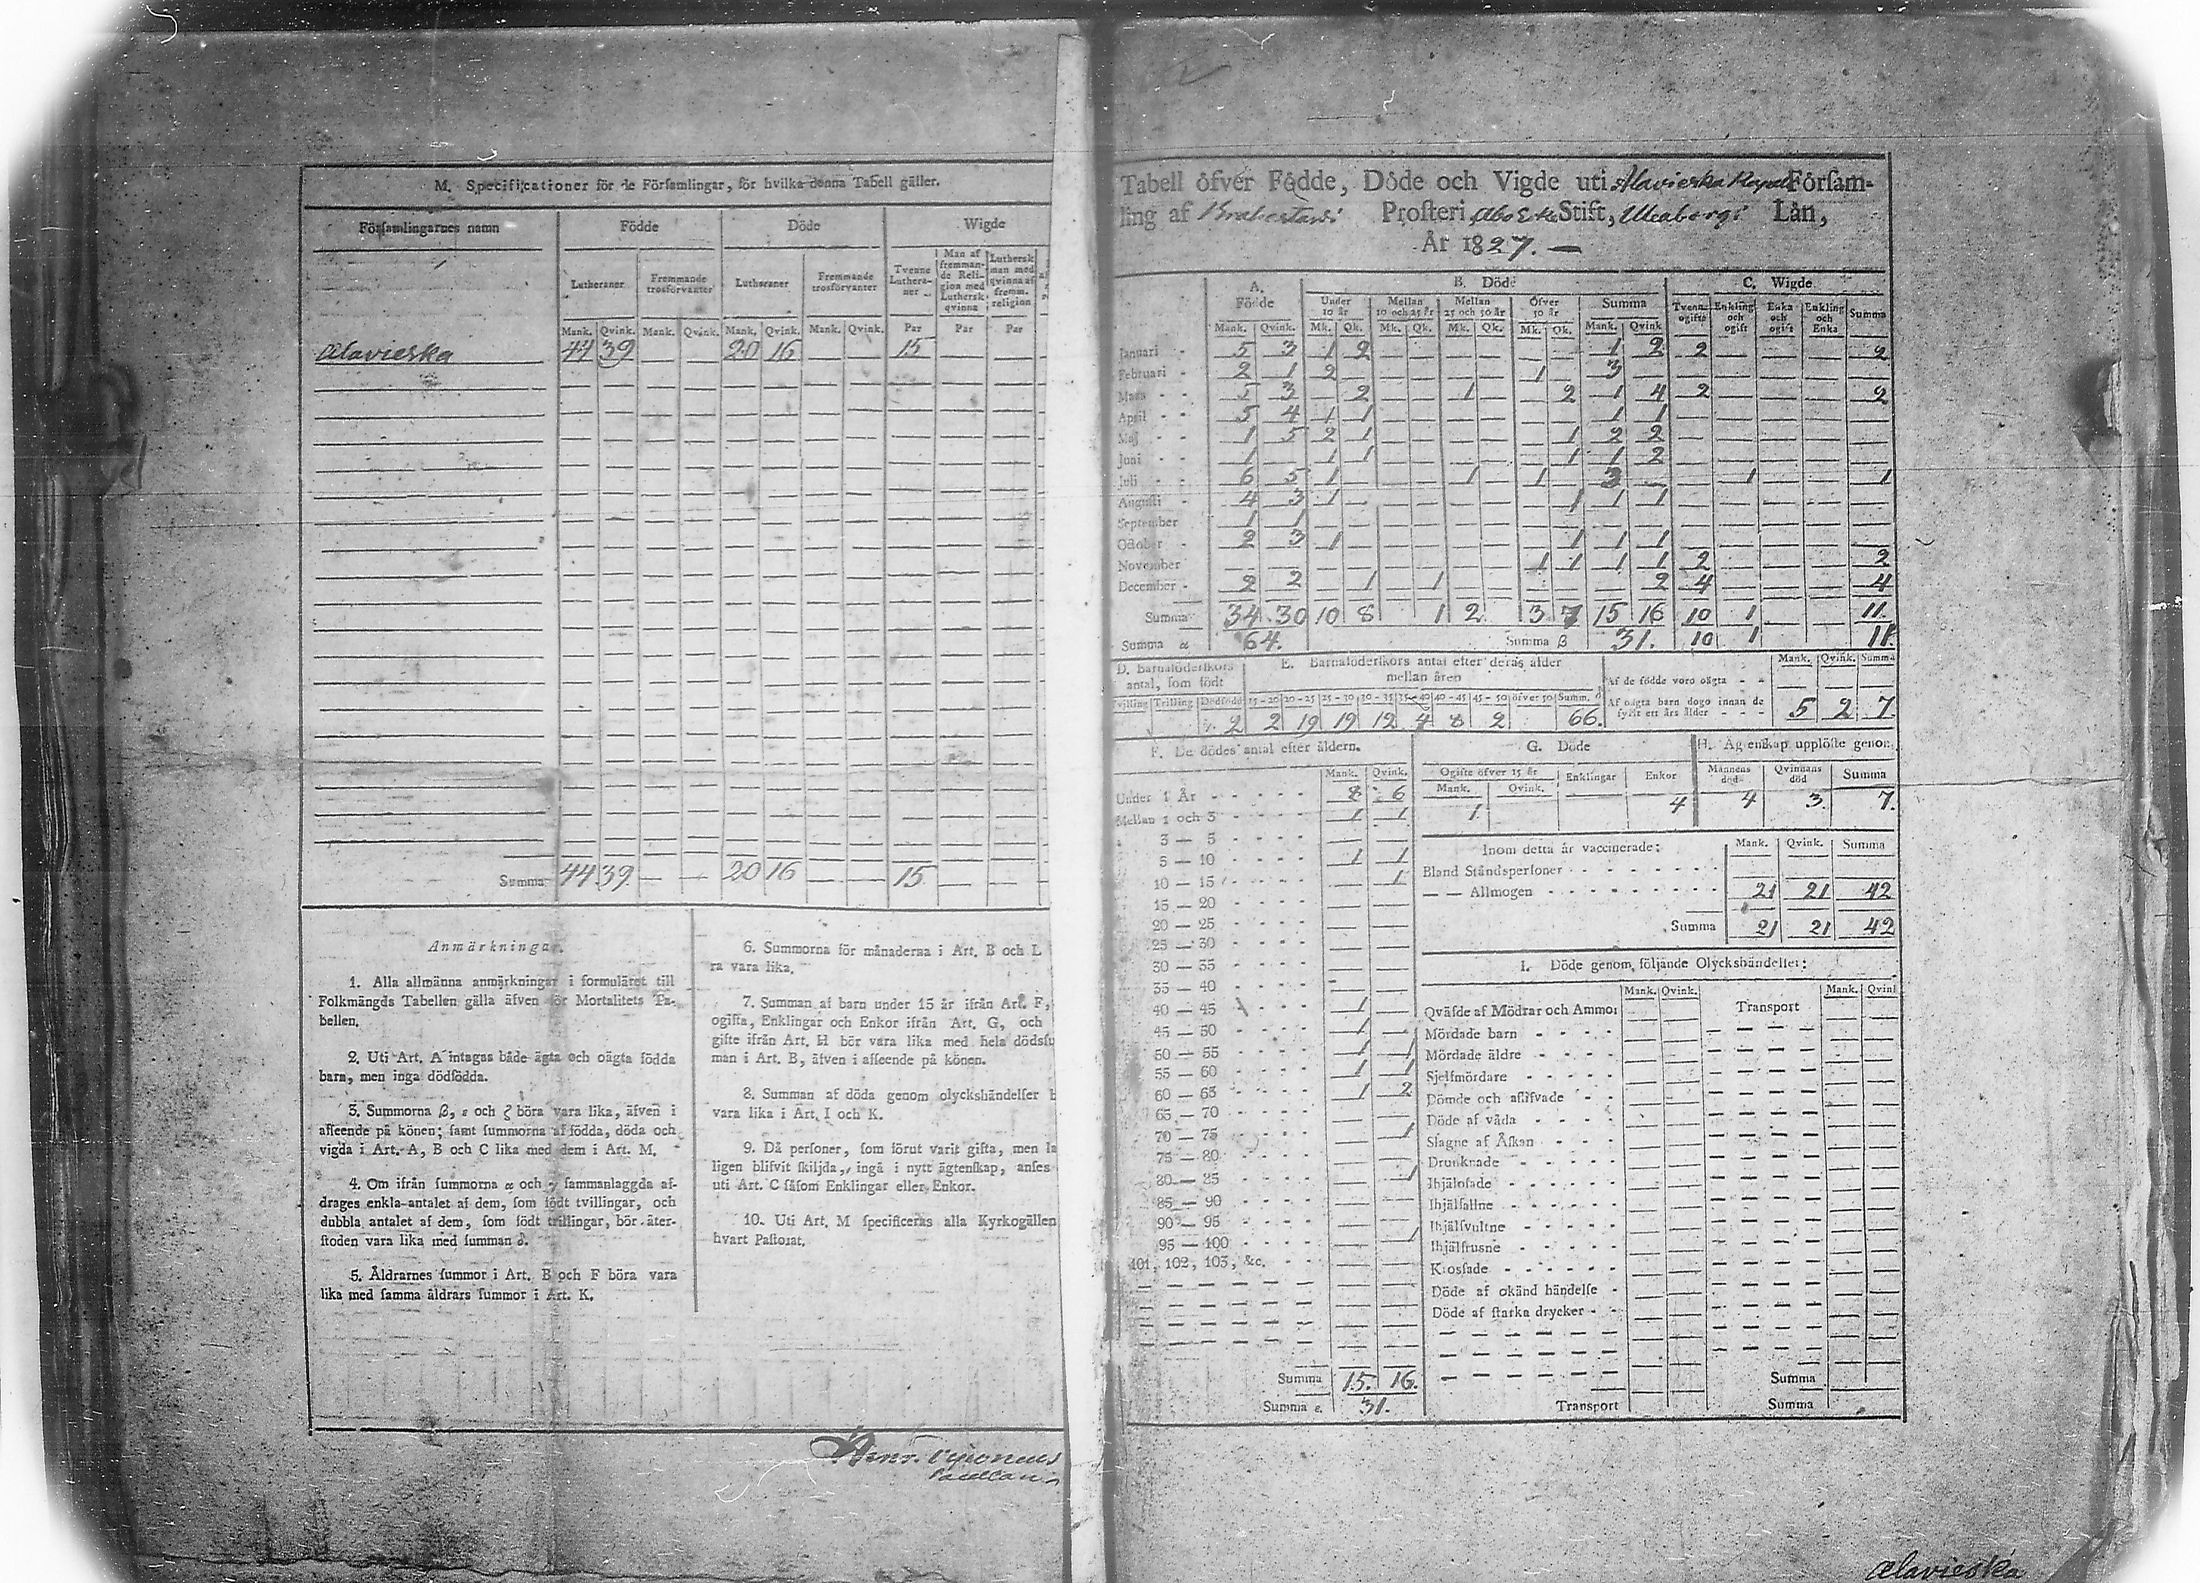 M. Specificationer för de Församlingar, för hvilka denna Tabell gäller.
Församlingarnes namn Födde Döde Wigde
Lutheraner Fremmande trosförvanter Lutheraner Fremmande trosförvanter Tvenne Lutheraner Man af fremmande Religion med Luthersk qvinna Luthersk man med qvinna af fremm. religion
Mank. Qvink. Mank. Qvink. Mank. Qvink. Mank. Qvink. Par Par Par
Alavieska 44 39 — — 20 16 — — 15 — —
Summa 44 39 — — 20 16 — — 15 — —
Anmärkningar.
1. Alla allmänna anmärkningar i formuläret till
Folkmängds Tabellen gälla äfven för Mortalitets Ta-
bellen.
2. Uti Art. A intagas både ägta och oägta födda
barn, men inga dödfödda.
3. Summorna β, ε och ζ böra vara lika, äfven i
afseende på könen; samt summorna af födda, döda och
vigda i Art. A, B och C lika med dem i Art. M.
4. Om ifrån summorna α och γ sammanlaggda af-
drages enkla-antalet af dem, som födt tvillingar, och
dubbla antalet af dem, som födt trillingar, bör åter-
stoden vara lika med summan δ.
5. Åldrarnes summor i Art. B och F böra vara
lika med samma åldrars summor i Art. K.
6. Summorna för månaderna i Art. B och L
ra vara lika.
7. Summan af barn under 15 år ifrån Art. F,
ogifta, Enklingar och Enkor ifrån Art. G, och
gifte ifrån Art. H bör vara lika med hela dödsfu
man i Art. B, äfven i afseende på könen.
8. Summan af döda genom olyckshändelser b
vara lika i Art. I och K.
9. Då personer, som förut varit gifta, men la
ligen blifvit skiljda, ingå i nytt ägtenskap, anses
uti Art. C såsom Enklingar eller Enkor.
10. Uti Art. M specificeras alla Kyrkogällen
hvart Pastorat.
Tabell öfver Födde, Döde och Vigde uti Alavieska Kapell Försam-
ling af Brahestads Prosteri, Åbo Erke Stift, Uleåborgs Län,
År 1827. —
A. Födde B. Döde C. Wigde
Under 10 år Mellan 10 och 25 år Mellan 25 och 50 år Öfver 50 år Summa Tvenne ogifte Enkling och ogift Enka och ogift Enkling och Enka Summa
Mank. Qvink. Mk. Qk. Mk. Qk. Mk. Qk. Mk. Qk. Mank. Qvink
Januari 5 3 1 2 — — — — — — 1 2 2 — — — 2
Februari 2 1 2 — — — — — 1 — 3 — — — — — —
Mars — 5 3 — 2 — — 1 — — 2 1 4 2 — — — 2
April 5 4 1 1 — — — — — — 1 1 — — — — —
Maj 1 5 2 1 — — — — — 1 2 2 — — — — —
Juni 1 — 1 1 — — — — — 1 1 2 — — — — —
Juli 6 5 1 — — — 1 — 1 — 3 — — 1 — — 1
Augusti 4 3 1 — — — — — — 1 1 1 — — — — —
September 1 1 — — — — — — — — — — — — — — —
October 2 3 1 — — — — — — 1 1 1 — — — — —
November — — — — — — — — 1 1 1 1 2 — — — 2
December 2 2 — 1 — 1 — — — — — 2 4 — — — 4
Summa 34 30 10 8 1 2 3 7 15 16 10 1 — — 11.
Summa α 64. Summa β 31. 10 1 — — 11
D. Barnaföderskors antal, som födt E. Barnaföderskors antal efter deras ålder mellan åren
Tvilling Trilling Dödfödd 15-20 20-25 25-30 30-35 35-40 40-45 45-50 öfver 50 Summ. δ
2 2 19 19 12 4 8 2 66.
Mank. Qvink. Summa
Af de födde voro oägta — — —
Af oägta barn dogo innan de fyllt ett års ålder 5 2 7
F. De dödes antal efter åldern.
Mank. Qvink.
Under 1 År 8 6
Mellan 1 och 3 1 1
3 — 5 — —
5 — 10 1 1
10 — 15 — 1
15 — 20 — —
20 — 25 — —
25 — 30 — —
30 — 35 — —
35 — 40 — —
40 — 45 1 —
45 — 50 1 —
50 — 55 1 1
55 — 60 1 1
60 — 65 1 2
65 — 70 — —
70 — 75 — 1
75 — 80 — —
80 — 85 — 1
85 — 90 — —
90 — 95 — —
95 — 100 — 1
101, 102, 103, &c. — —
Summa 15. 16.
Summa ε. 31.
G. Döde
Ogifte öfver 15 år Enklingar Enkor
Mank. Qvink.
1. 4
H. Ägtenskap upplöste genom
Mannens död Qvinnans död Summa
4 3 7.
Inom detta år vaccinerade: Mank. Qvink. Summa
Bland Ståndspersoner — — —
— — Allmogen 21 21 42
Summa 21 21 42
I. Döde genom följande Olyckshändelser:
Mank. Qvink. Transport Mank. Qvink
Qväfde af Mödrar och Ammor
Mördade barn
Mördade äldre
Sjelfmördare
Dömde och aflifvade
Döde af våda
Slagne af Åskan
Drunknade
Ihjälosade
Ihjälfallne
Ihjälsvultne
Ihjälfrusne
Krossade
Döde af okänd händelse
Döde af starka drycker
Summa
Transport Summa
Alavieska